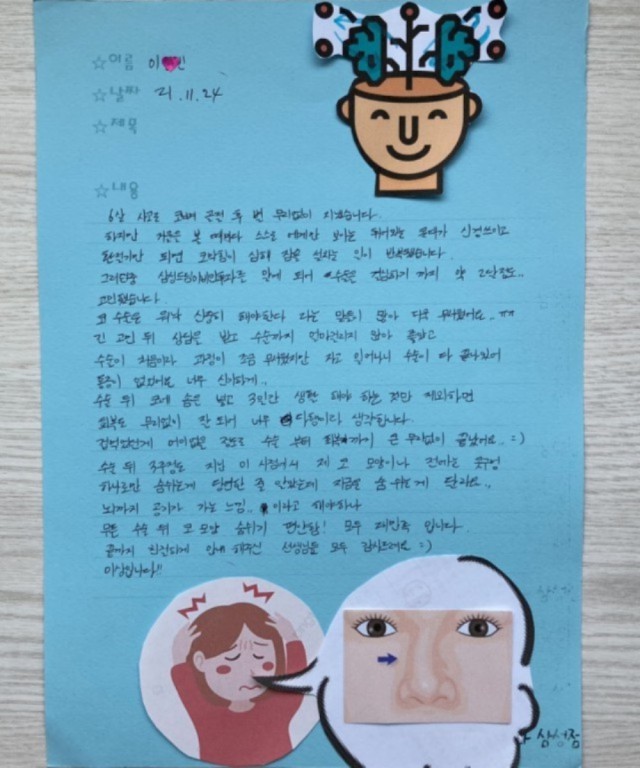 ☆이름 이 인
☆날짜 21.11.24
☆제목
☆내용
6살 사고로 코뼈에 금간 후 별 무리없이 지냈습니다.
하지만 거울은 볼 때마다 스스로 예민한 보이는 휘어지는 콧대가 신경쓰이고
환절기만 되면 코막힘이 심해 잠을 설치는 일이 반복됐습니다.
그러던중 삼성드림이비인후과를 알게 되어 수술은 결심하기 까지 약 2년정도..
고민됐습니다.
코 수술은 뭐가 신중히 해야한다 라는 말들이 많아 더욱 무서웠어요..ㅠㅠ
긴 고민 뒤 상담을 받고 수술까지 얼마걸리지 않아 좋았고
수술이 처음이라 과정이 조금 무서웠지만 자고 일어나니 수술이 다 끝나있어
통증이 없었어요 너무 신기하게..
수술 뒤 코에 솜은 넣고 3일만 생활 해야 하는 것만 제외하면
회복도 무리없이 잘 되어 너무 다행이라 생각합니다.
겁먹었던게 어이없을 정도로 수술 부터 회복까지 큰 무리없이 끝났어요. :)
수술 뒤 3주정도 지난 이 시점에서 제 코 모양이나 전에는 콧구멍
하나로만 숨쉬는게 당연한 줄 알았는데 지금은 숨 쉬는게 달라요..
뇌까지 공기가 가는 느낌.. 이라고 해야하나
무튼 수술 뒤 코 모양 숨쉬기 편안함! 모두 대만족 입니다.
끝까지 친절하게 안내 해주신 선생님들 모두 감사드려요 :)
이상입니다!!
삼성점